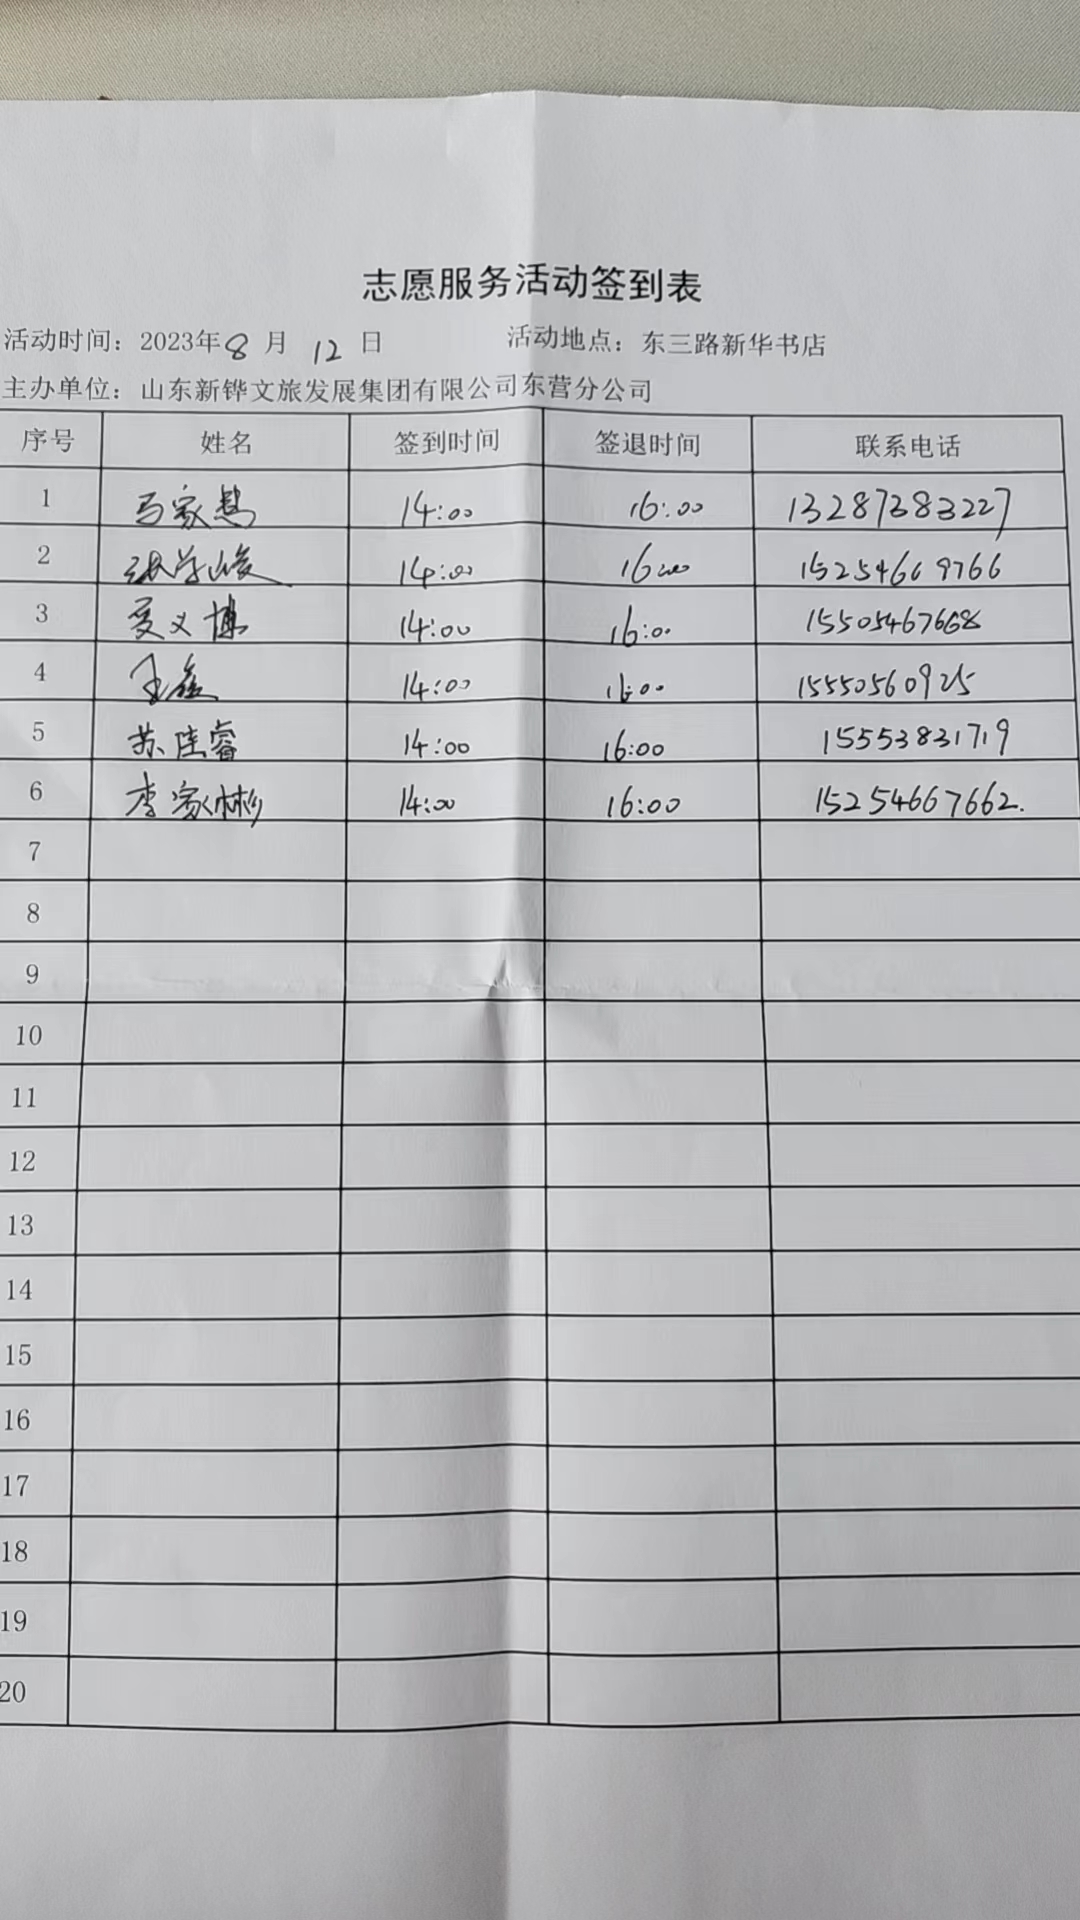 志愿服务活动签到表
活动时间：2023年8月12日 活动地点：东三路新华书店
主办单位：山东新铧文旅发展集团有限公司东营分公司
序号 姓名 签到时间 签退时间 联系电话
1 马家慧 14:00 16:00 13287383227
2 张学峻 14:00 16:00 15254669766
3 义博 14:00 16:00 15505467668
4 王鑫 14:00 16:00 15550560925
5 苏佳睿 14:00 16:00 15553831719
6 李家彬 14:00 16:00 15254667662.
7
8
9
10
11
12
13
14
15
16
17
18
19
20